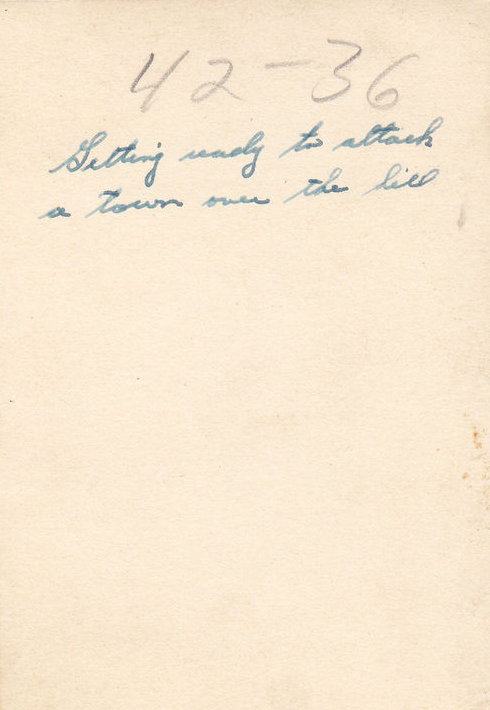 42-36
Getting ready to attack
a town over the hill